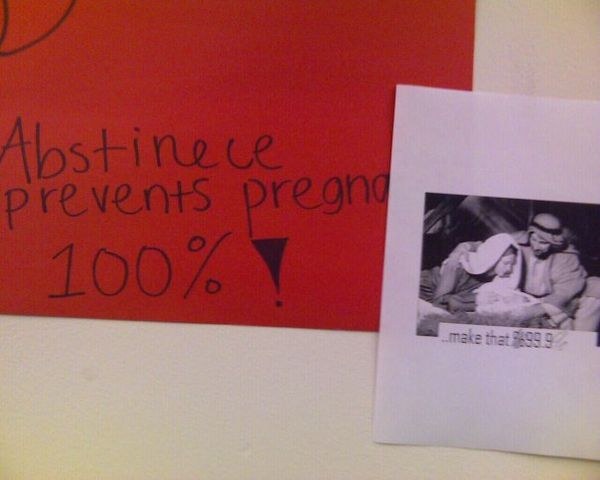 Abstinece
prevents pregna
100%!
..make that %99.9